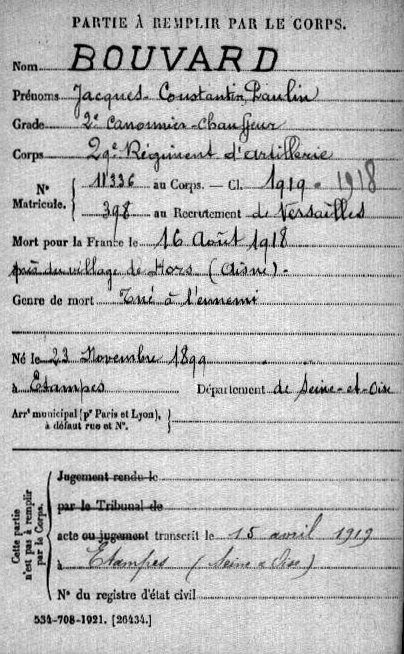 PARTIE À REMPLIR PAR LE CORPS.
Nom BOUVARD
Prénoms Jacques Constantin Paulin
Grade 2e canonnier-chauffeur
Corps 29e Régiment d'artillerie
N° Matricule. { 11336 au Corps. — Cl. 1919 - 1918
398 au Recrutement de Versailles
Mort pour la France le 16 Août 1918
près du village de Hors (Aisne) -
Genre de mort Tué à l'ennemi
Né le 23 Novembre 1899
à Etampes Département de Seine-et-Oise
Arrt municipal (pr Paris et Lyon), à défaut rue et N°. }
Cette partie n'est pas à remplir par le Corps. {
Jugement rendu le
par le Tribunal de
acte ou jugement transcrit le 15 avril 1919
à Etampes (Seine & Oise)
N° du registre d'état civil
534-708-1921. [26434.]